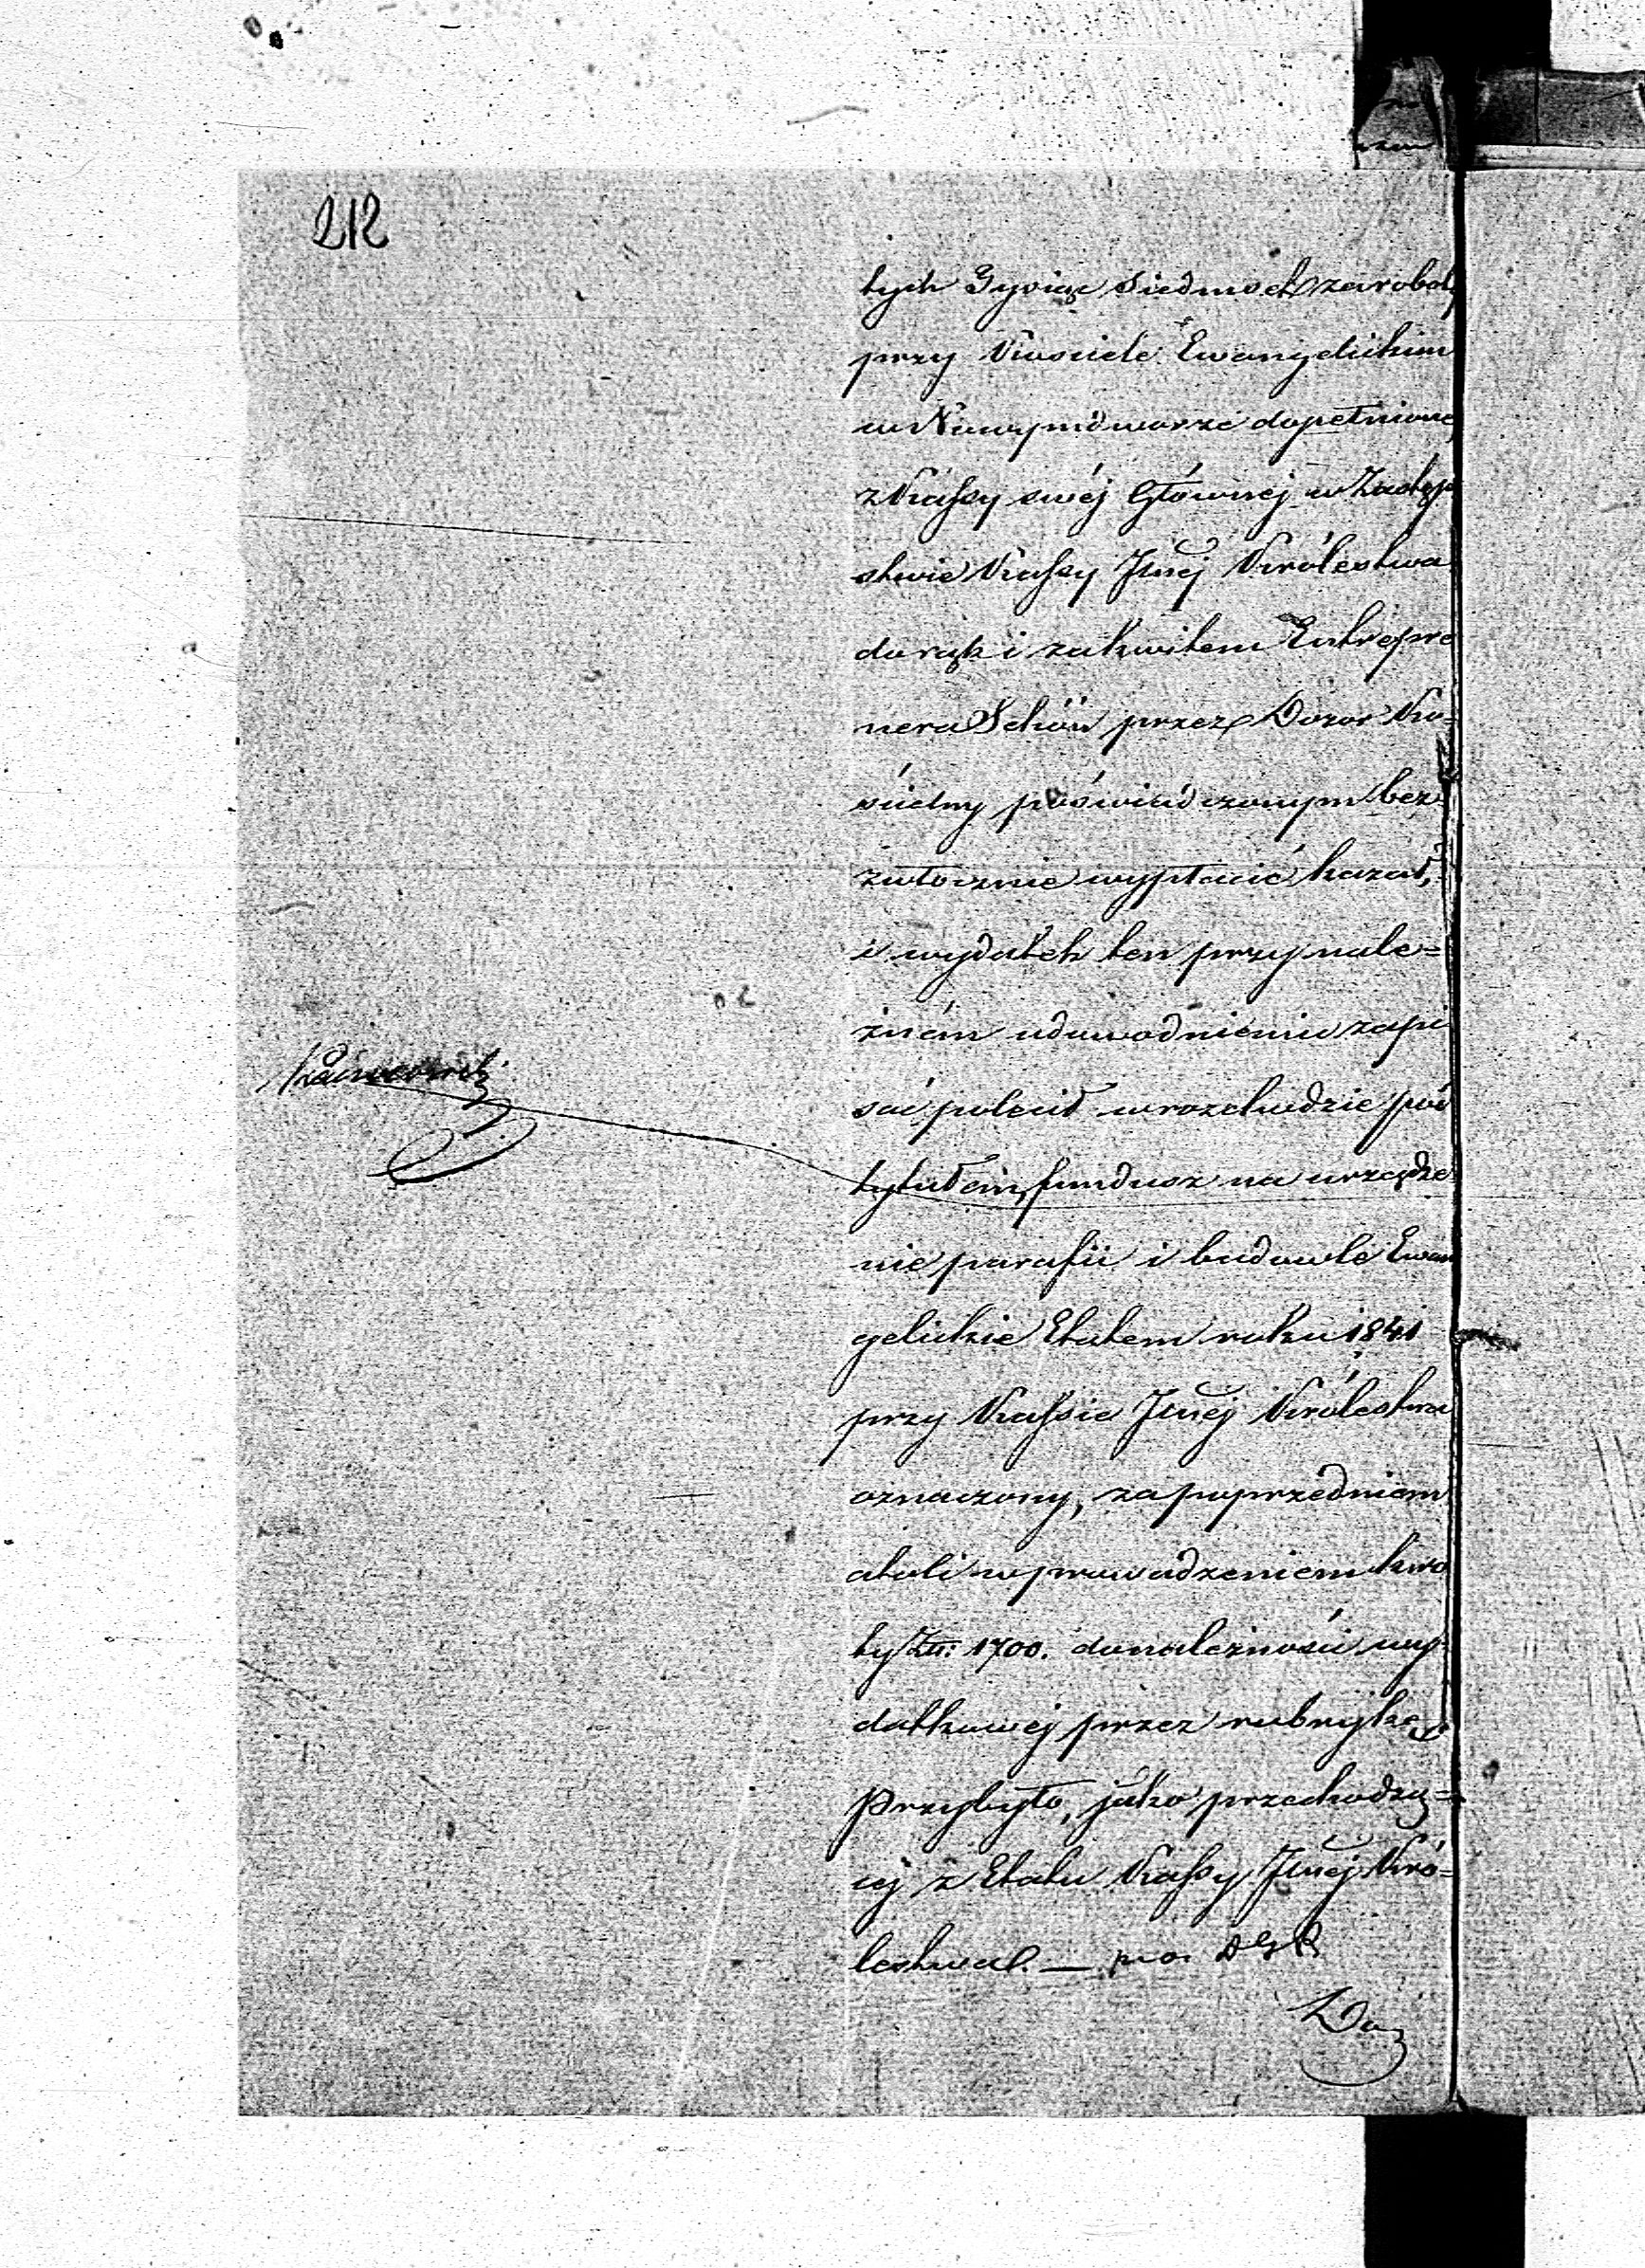 212
tych Tysiąc Siedmset za roboty
przy Kosciele Ewangelickim
w Nowymdworze dopełnione
z Kassy swéj Głównéj w Zastęp
stwie Kassy Jlnéj Królestwa
do rąk i za kwitem Entrepre
nera Schön przez Dozor Ko-
ścielny poświadczonym bez-
zwłocznie wypłacić kazał,
i wydatek ten przy nale-
żném udowodnieniu zapi
sać polecił w rozchodzie pod
tytułem, fundusz na urządze
nie parafii i budowle Ewan
gelickie Etatem roku 1841
przy Kassie Jlnéj Królestwa
oznaczony, za poprzedniem
atoli wprowadzeniem kwo
ty Zł: 1700. do należności wy-
datkowéj przez rubrykę
Przybyło, jako przechodzą-
céj z Etatu Kassy Jlnéj Kró-
lestwa.